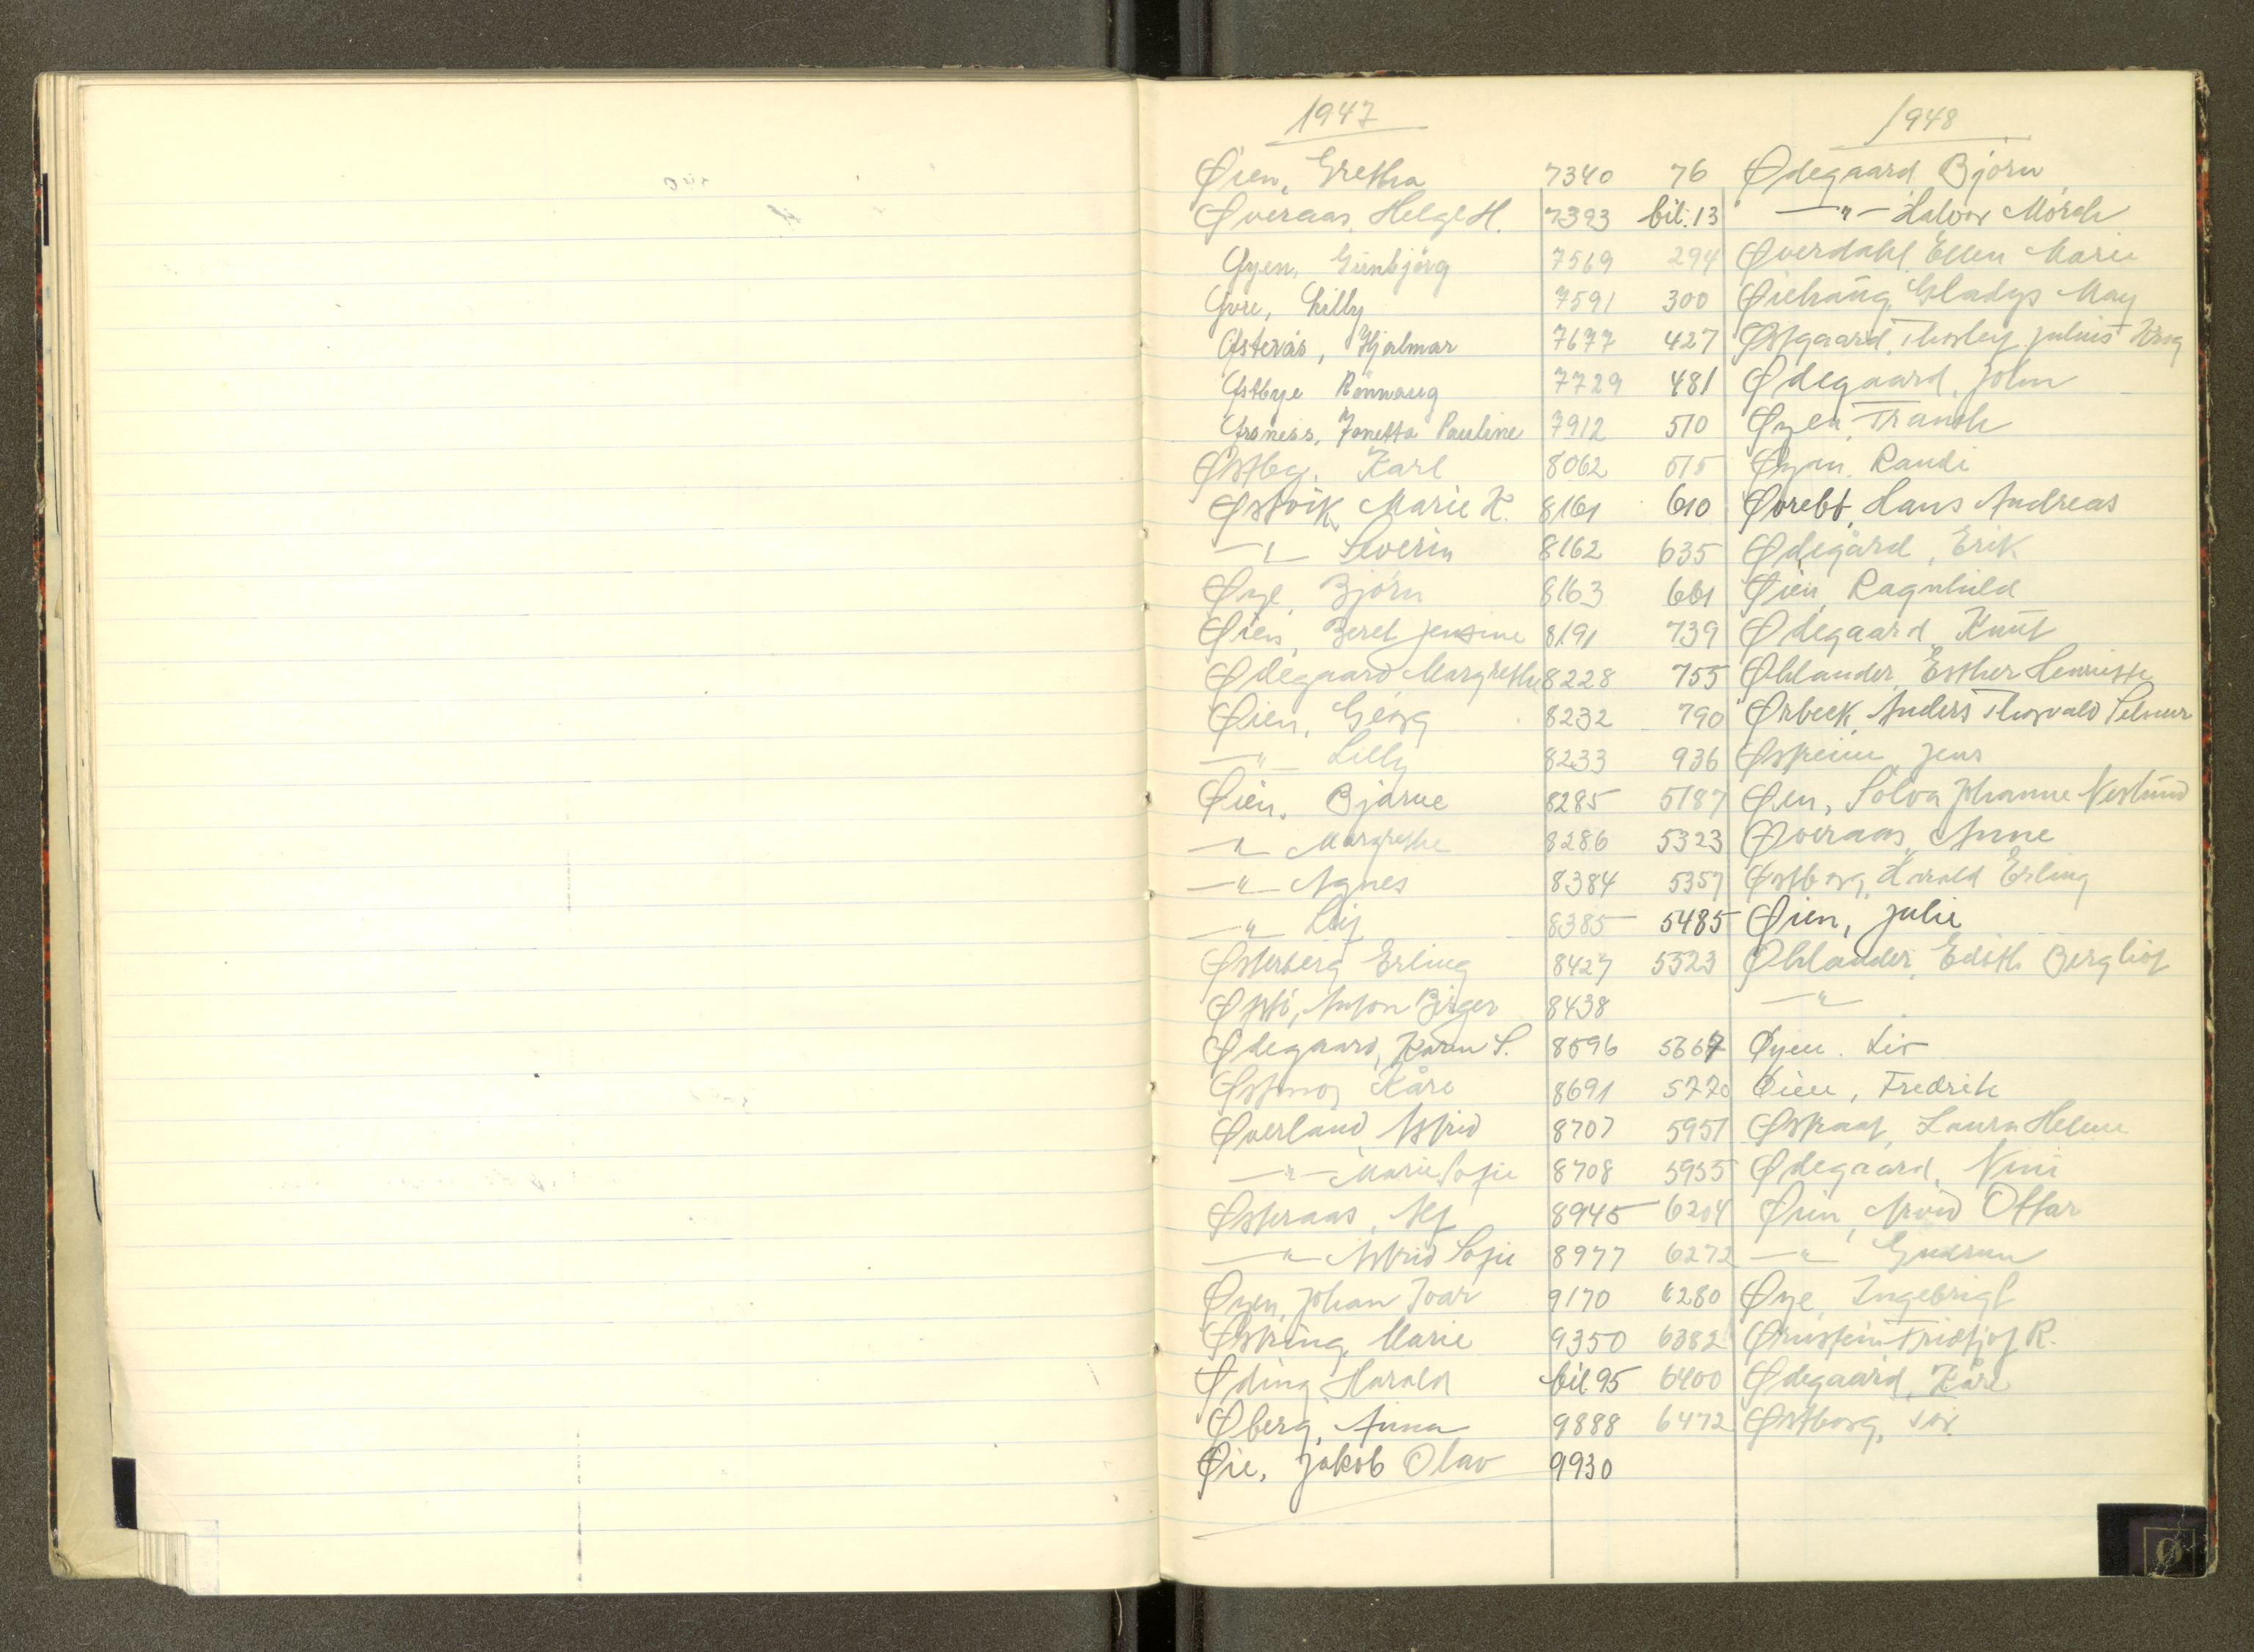 1947 1948
Øien, Gretha 7340 76 Ødegaard Björn
Øveraas, Helge H. 7393 bil. 13 —"— Halvor Mörch
Øyen, Gunbjörg 7569 294 Øverdahl, Ellen Marie
Øvre, Lilly 7591 300 Øiehaug, Gladys May
Østerås, Hjalmar 7677 427 Østgaard, Thorleif Julius Krog
Østbye Rönnaug 7729 481 Ødegaard, John
Janetta Pauline 7912 510 Øyen,
Østby, Karl 8062 515 Øyen, Randi
Østvik, Marie K. 8161 610 Øvrebö, Hans Andreas
—"— Severin 8162 635 Ødegård, Erik
Øye, Björn 8163 661 Øien, Ragnhild
Øien, Beret Jensine 8191 739 Ødegaard, Knut
Ødegaard Margrethe 8228 755 Øhlander, Esther Henriette
Øien, Georg 8232 790 Ørbeck, Anders Thorvald
—"— Lilly 8233 936 Østreim, Jens
Øien, Bjarne 8285 5187 Øien, Solva Johanne Neslund
—"— Margrethe 8286 5323 Øveraas, Anne
—"— Agnes 8384 5357 Østborg, Harald Erling
—"— Leif 8385 5485 Øien, Julie
Østerberg Erling 8427 5523 Øhlander, Edith Bergliot
Anton Birger 8438 —"—
Ødegaard, Karen S. 8596 5667 Øyen. Liv
Østmo, Kåre 8691 5770 Øien, Fredrik
Øverland, Astrid 8707 5951 Østraat, Laura Helene
—"— Marie Sofie 8708 5955 Ødegaard, Nini
Østeraas, Alf 8945 6204 Øien, Arvid Ottar
—"— Astrid Sofie 8977 6272 —"— Gudrun
Øyen, Johan Ivar 9170 6280 Øye, Ingebrigt
Østring, Marie 9350 6382 Ørnstein Fridtjof R.
Øding Harald bil. 95 6400 Ødegaard, Kåre
Øberg, Anna 9888 6472 Østborg,
Øie, Jakob Olav 9930
Ø